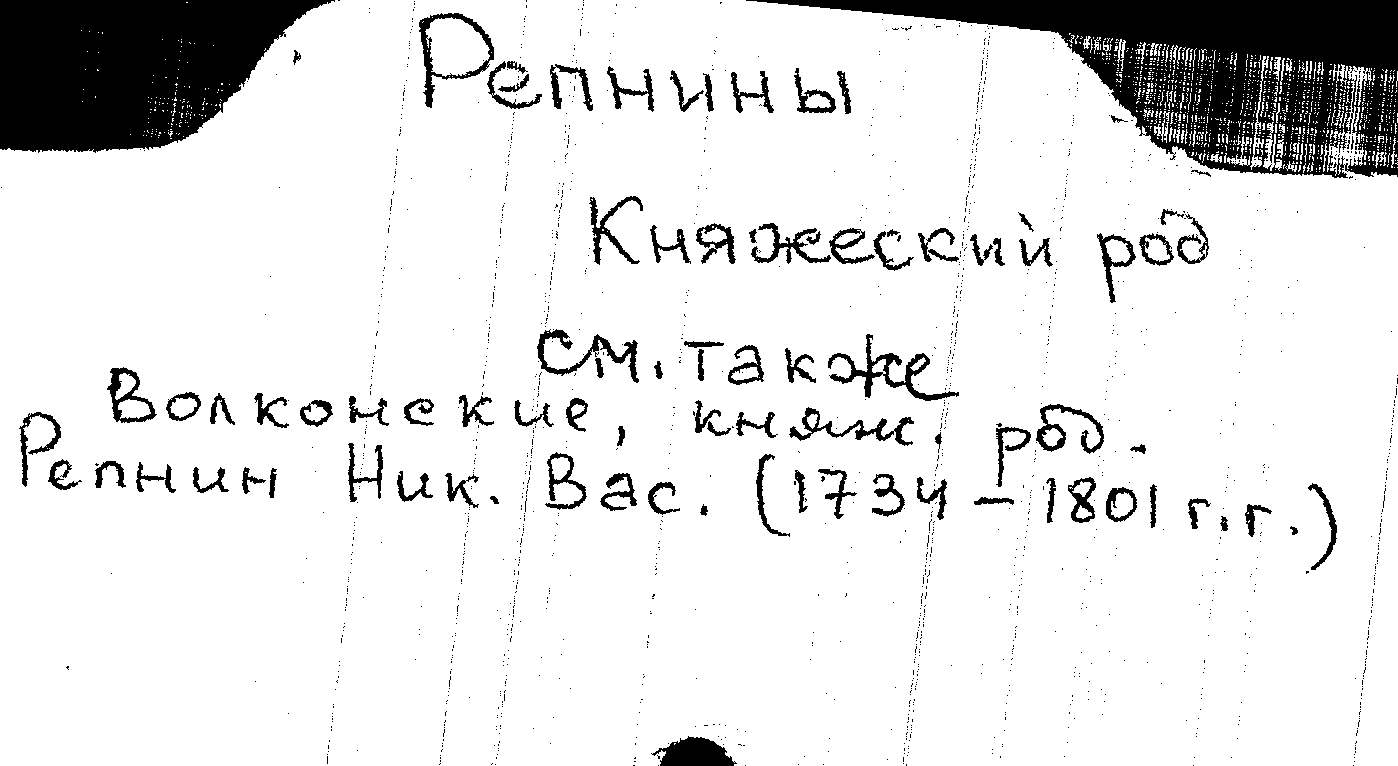 Репнины
Княжеский род
см. также
Волконские, княж. род.
Репнин Ник. Вас. (1734 – 1801 г.г.)